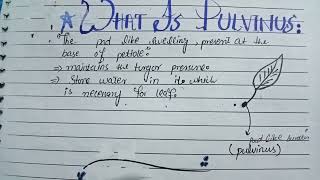 What Is Pulvinus:
"The pod like swelling present at the
base of petiole"
⇒ maintains the turgor pressure
⇒ Store water in it which
is necessary for leaf.
Pod like
(pulvinus)